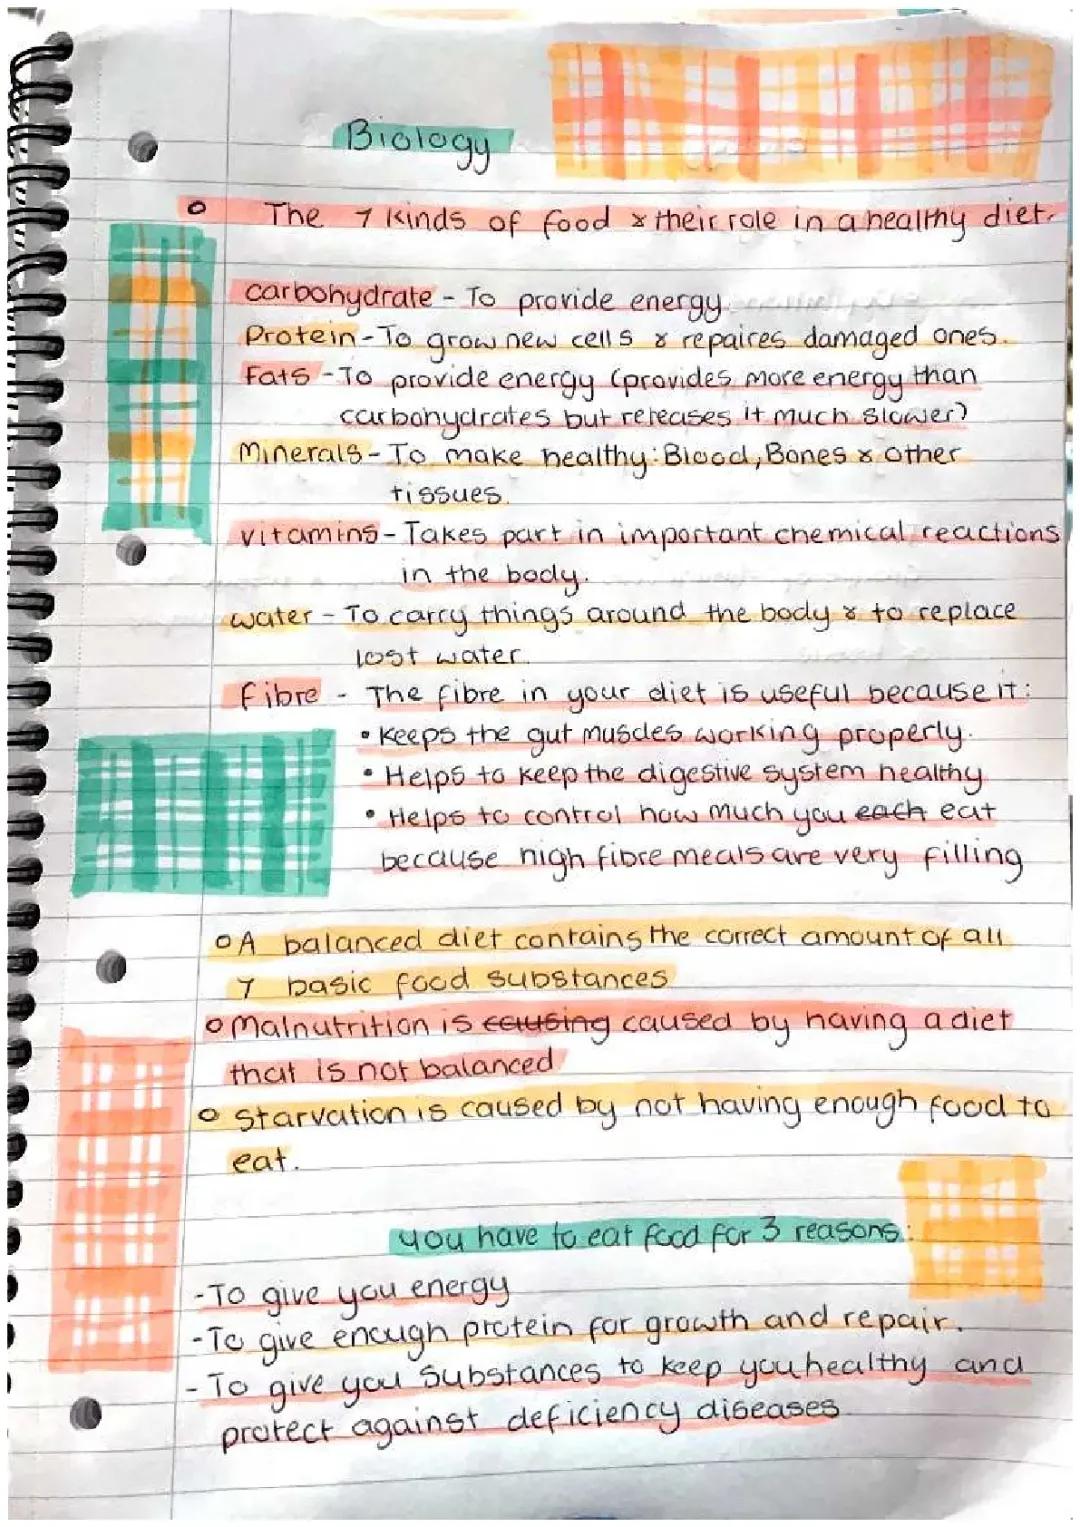 Biology
The 7 kinds of food & their role in a healthy diet.
carbohydrate - To provide energy.
Protein - To grow new cells & repaires damaged ones.
Fats - To provide energy (provides more energy than
carbohydrates but releases it much slower)
Minerals - To make healthy: Blood, Bones & other
tissues.
vitamins - Takes part in important chemical reactions
in the body.
water - To carry things around the body & to replace
lost water.
fibre - The fibre in your diet is useful because it:
• Keeps the gut muscles working properly.
• Helps to keep the digestive system healthy
• Helps to control how much you each eat
because high fibre meals are very filling
○ A balanced diet contains the correct amount of all
7 basic food substances
○ Malnutrition is causing caused by having a diet
that is not balanced
○ Starvation is caused by not having enough food to
eat.
you have to eat food for 3 reasons:
- To give you energy
- To give enough protein for growth and repair.
- To give you substances to keep you healthy and
protect against deficiency diseases